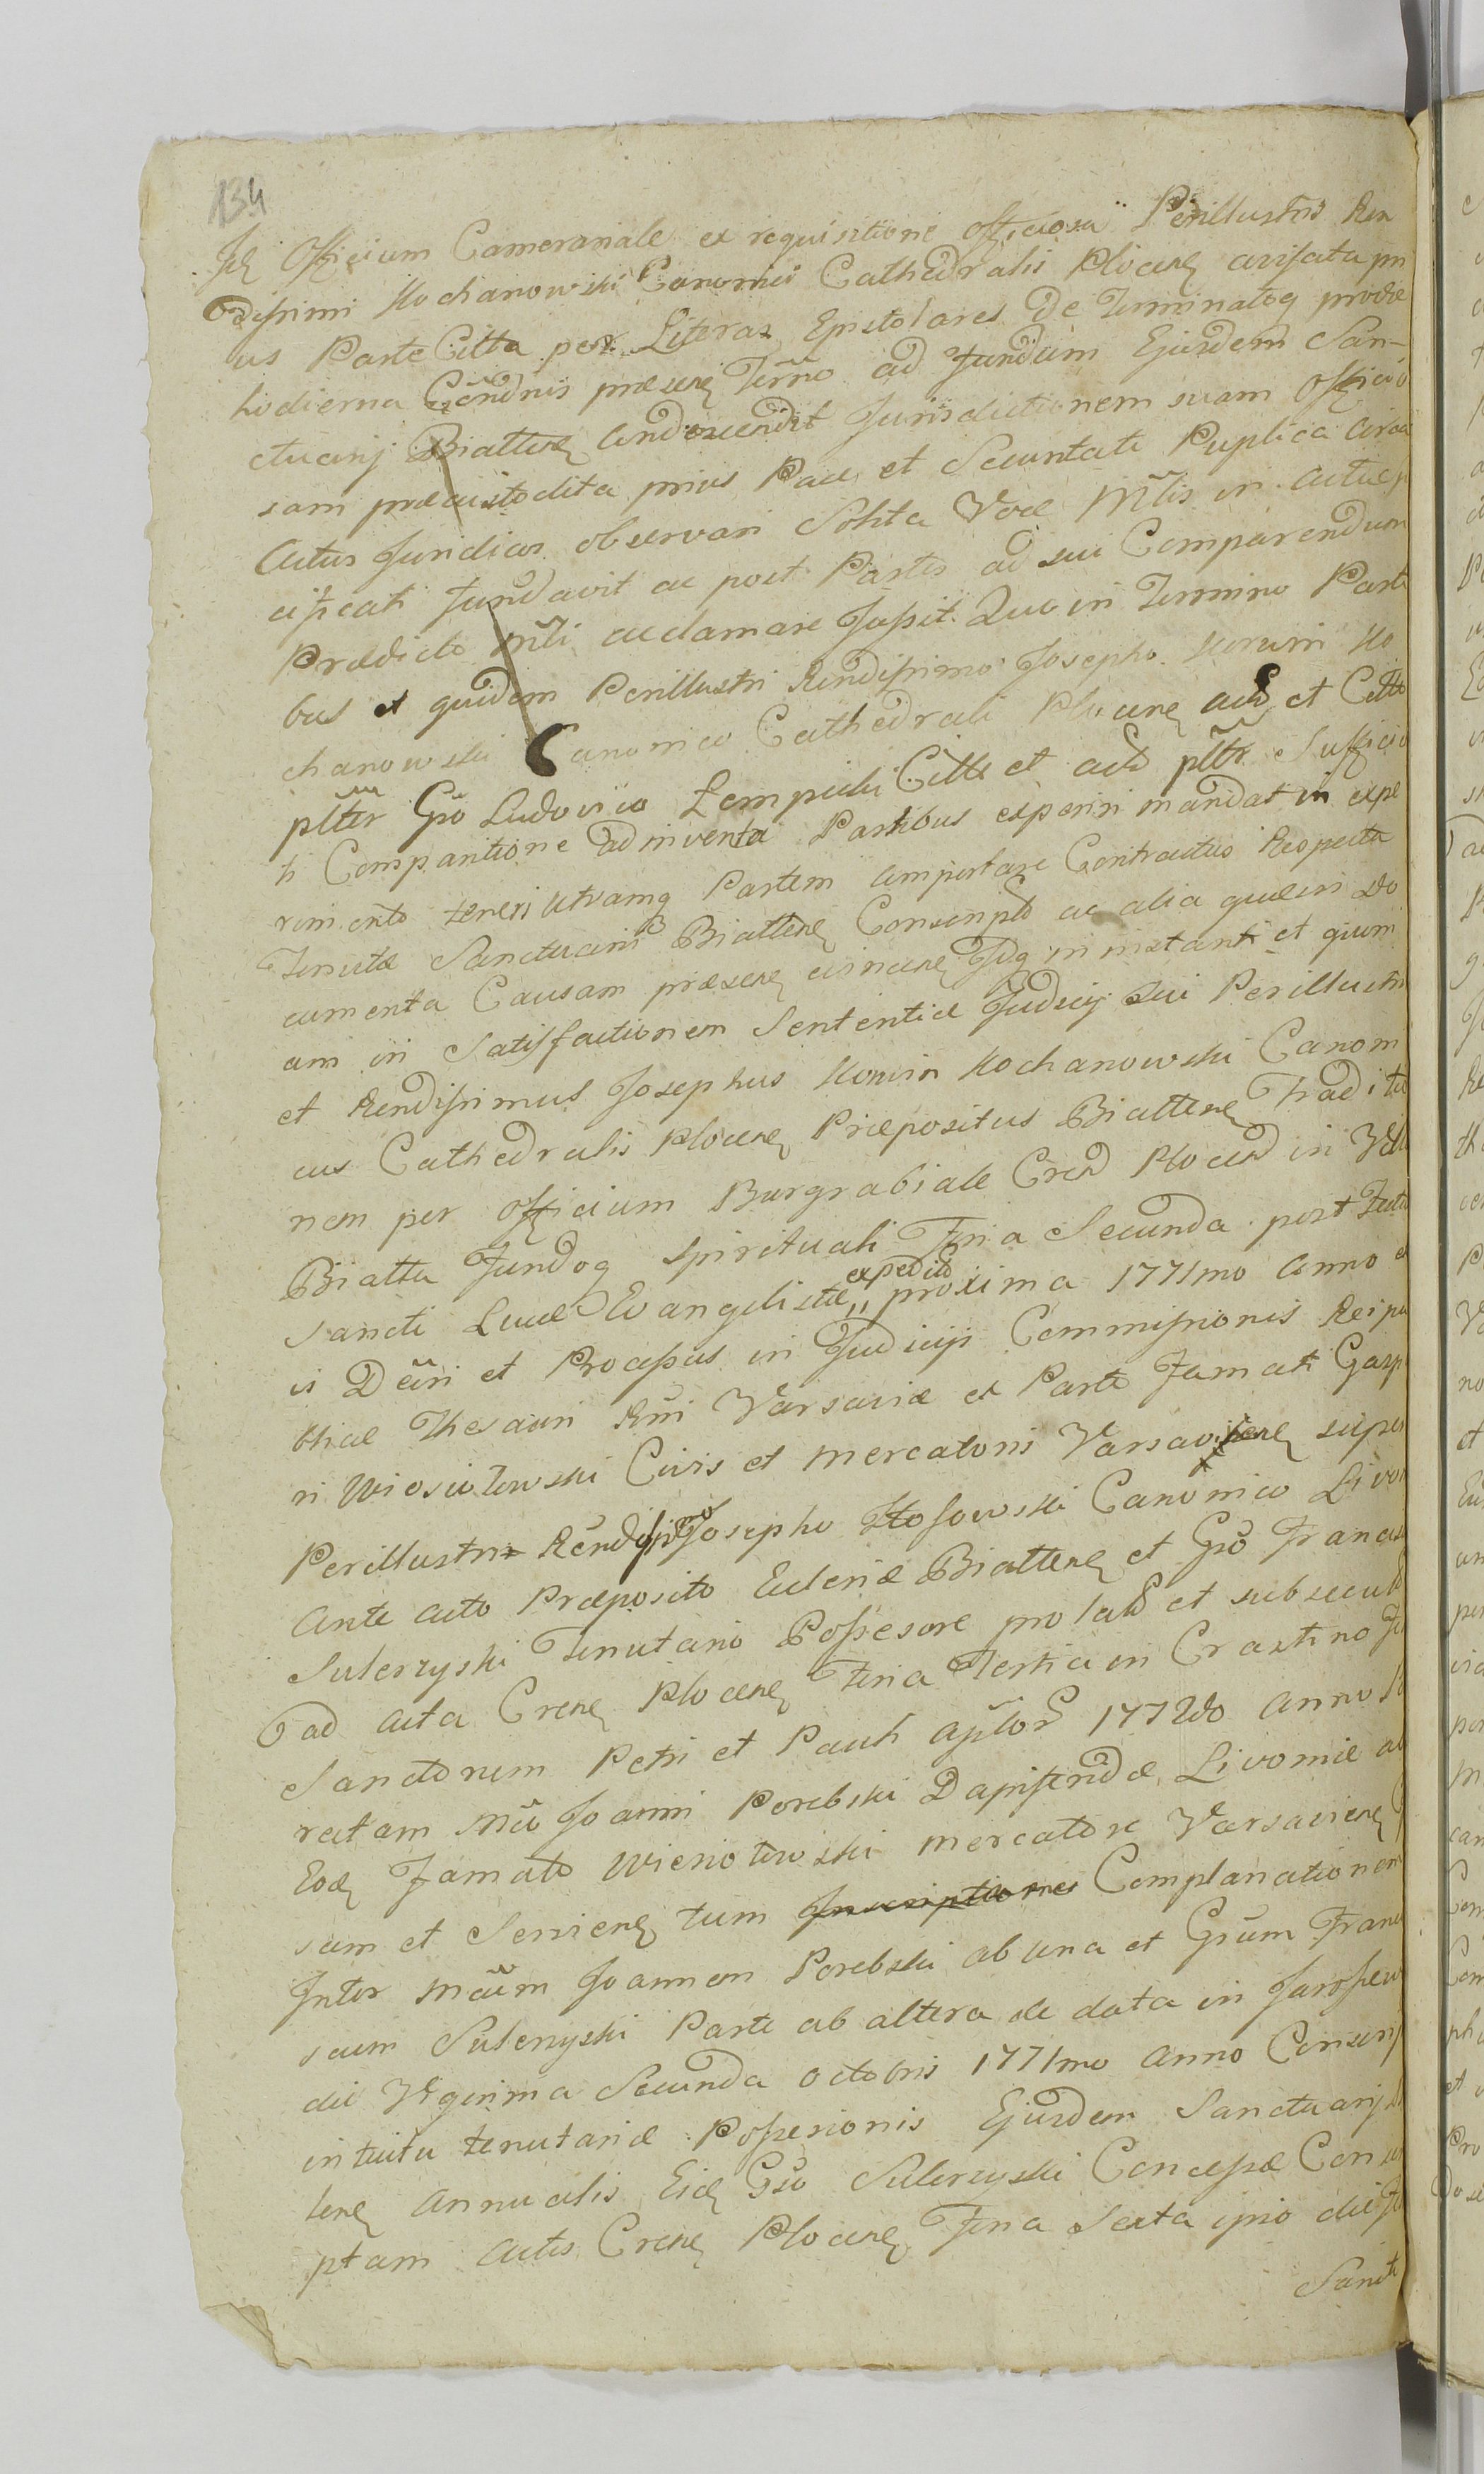 134
Id Officium Cameranale ex requisitione officiosa Perillustris Ren
dissimi Kochanowski Canonici Cathedralis Plocens avisata pri
us Parte Citta per Literas Epistolares De Terminatoq prodie
hodierna Cendnis praesens Termo ad Fundum Ejusdem San-
ctuarij Biattens Condescendit Jurisdictionem suam Officio
sam praecustodita prius Pace et Securitate Puplica circa
Actus Juridicos observari Solita Voce Mtlis in actu
cipeati Fundavit ac post Partes ad sui Comparendum
Praedicto Mtli acclamare Jussit. Quo in Termino Parti
bus et quidem Perillustri Rendissimo Josepho Korwin Ko
chanowski Canonico Cathedrali Plocens actd et Citto
plttr Gso Ludovico Lempicki Citto et actd plttr Suffici
ti Comparitione adinventa Partibus experiri mandat in expe
rimento teneri Utramq Partem Comportare Contractus Respectu
Tenutae Sanctuarii Biattens Conscripto ac alia quaevis Do
cumenta Causam praesens evincens Idq in instanti et quoni
am in Satisfactionem Sententiae Judicij Sui Perillustris
et Rendissimus Josephus Korwin Kochanowski Canoni
cus Cathedralis Plocens Praepositus Biattens Traditio
nem per Officium Burgrabiale Crend Plocend in Villa
Biatta Fundoq Spirituali Feria Secunda post Festu
Sancti Lucae Evangelistae expedito proxima 1771mo Anno
is Decri et Processus in Judicijs Commissionis Reipu
blicae Thesauri Rni Varsaviae ex Parte Famati Gasp
ri Wiesiotowski Civis et mercatoris Varsaviens super
Perillustri Rendissimo Josepho Stosowski Canonico Livon
Ante acto Praeposito Eccleriae Biattens et Gso Francis
Sulerzyski Tenutario Possesore prolato et subsecuto
ad acta Crens Plocens Feria Tertia in Crastino
Sanctorum Petri et Pauli Apllor 1772do Anno
rectam Mco Joanni Porebski Dapiferidae Livoniae ab
Eode Famato Wiesiotowski mercatore Varsaviens
sam et Serviens tum Inscriptiones Complanationem
Inter Mcum Joannem Porebski ab una et Gsum Franci
scum Sulerzyski Parte ab altera de data in Jarossew
die Vigesima Secunda Octobris 1771mo Anno Conscrip
intuitu tenutariae Possesionis Ejusdem Sanctuarij
tens Annualis Eide Gso Sulerzyski Concessae Conscri
ptam Actis Crens Plocens Feria Sexta ipso die
Sancti